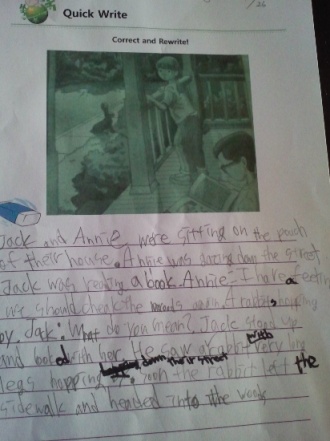 /26
Quick Write
Correct and Rewrite!
Jack and Annie, were sitting on the porch
of their house. Annie was down the street
Jack was reading a book. Annie: I have a feeling
we should check the woods again. A rabbit
by. Jack: What do you mean? Jack stood up
and looked with her. He saw a rabbit with very long
legs hopping down their street. soon the rabbit left the
sidewalk and headed into the woods